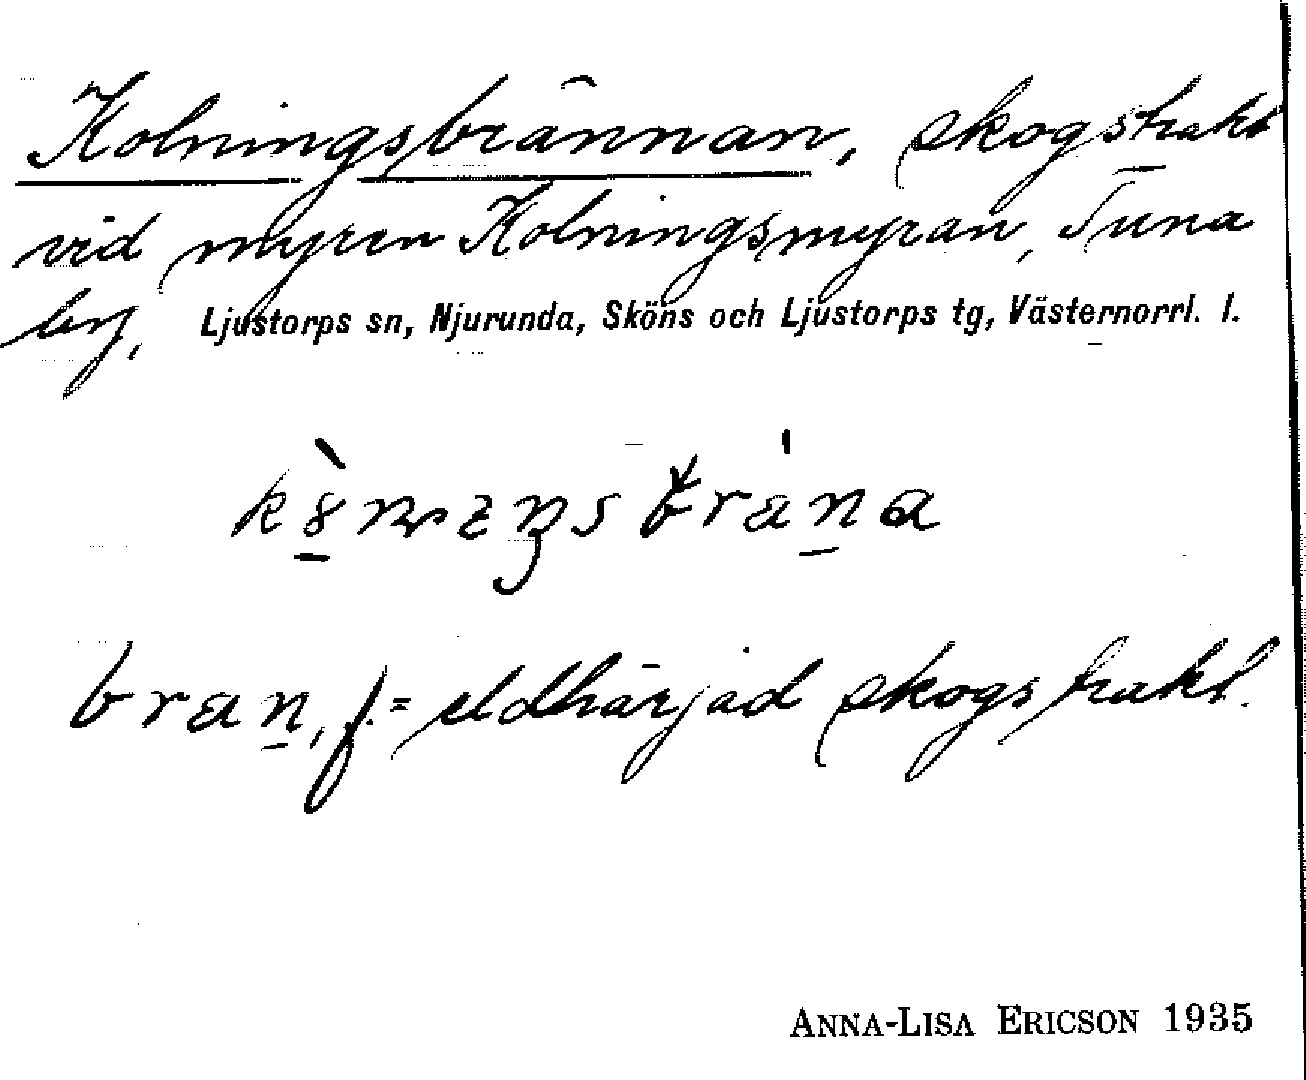 Kolningsbrännan, skogstrakt
vid myren Kolningsmyran, Tuna
by, Ljustorps sn, Njurunda, Sköns och Ljustorps tg, Västernorrl. l.
bran, f. = eldhärjad skogstrakt.
ANNA-LISA ERICSON 1935